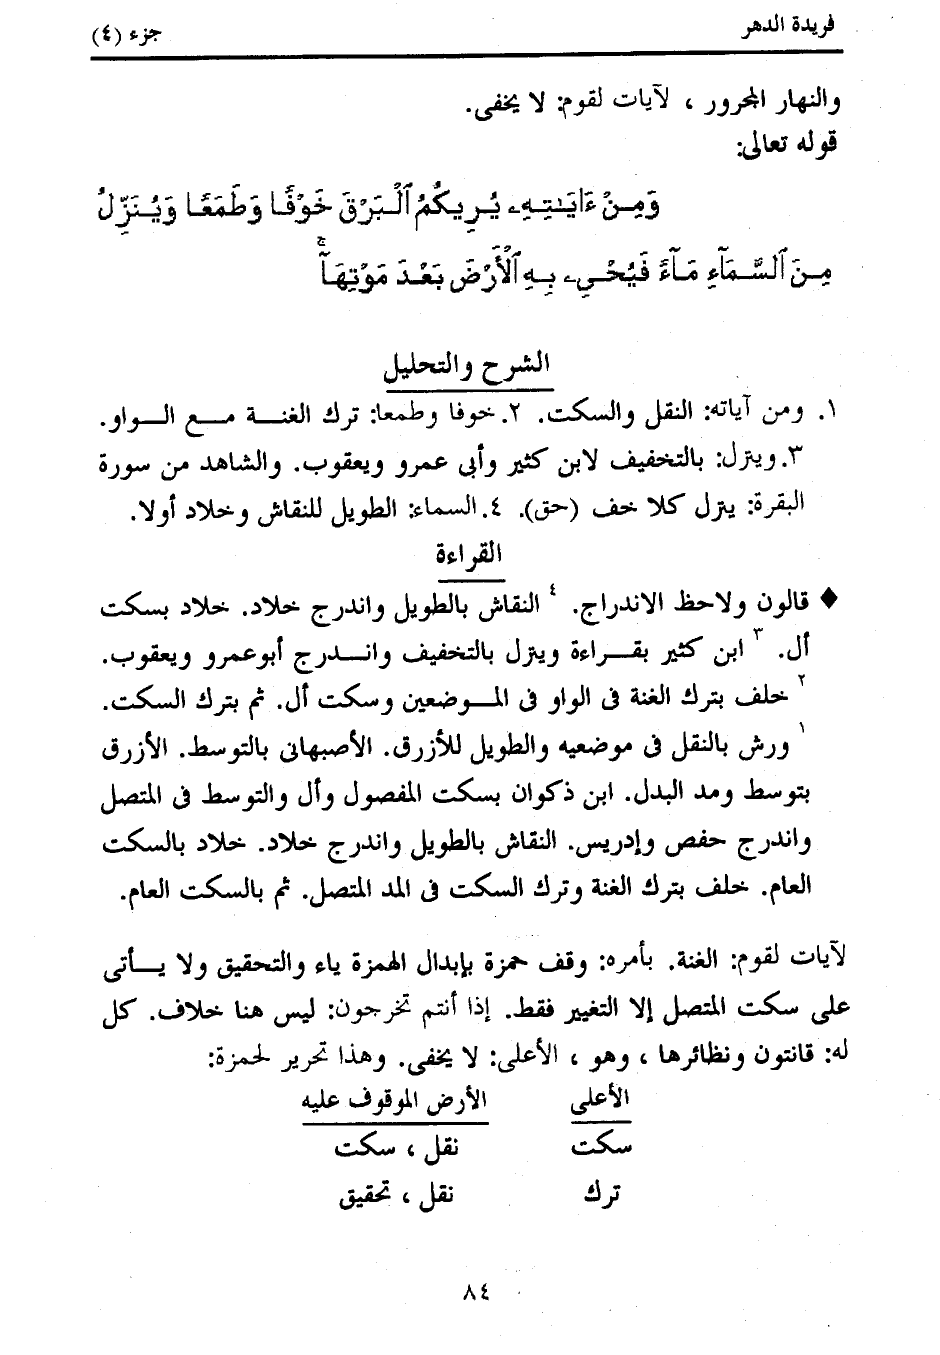 فريدة الدهر
جزء (٤)
والنهار المجرور ، لآيات لقوم: لا يخفى.
قوله تعالى:
وَمِنْ ءَايَـٰتِهِۦ يُرِيكُمُ ٱلْبَرْقَ خَوْفًا وَطَمَعًا وَيُنَزِّلُ
مِنَ ٱلسَّمَآءِ مَآءً فَيُحْىِۦ بِهِ ٱلْأَرْضَ بَعْدَ مَوْتِهَآ ۚ
الشرح والتحليل
١. ومن آياته: النقل والسكت. ٢. خوفا وطمعا: ترك الغنة مع الواو.
٣. وينزل: بالتخفيف لابن كثير وأبى عمرو ويعقوب. والشاهد من سورة
البقرة: ينزل كلا خف (حق). ٤. السماء: الطويل للنقاش وخلاد أولا.
القراءة
♦ قالون ولاحظ الاندراج. ٤ النقاش بالطويل واندرج خلاد. خلاد بسكت
أل. ٣ ابن كثير بقراءة وينزل بالتخفيف واندرج أبوعمرو ويعقوب.
٢ خلف بترك الغنة فى الواو فى الموضعين وسكت أل. ثم بترك السكت.
١ ورش بالنقل فى موضعيه والطويل للأزرق. الأصبهانى بالتوسط. الأزرق
بتوسط ومد البدل. ابن ذكوان بسكت المفصول وأل والتوسط فى المتصل
واندرج حفص وإدريس. النقاش بالطويل واندرج خلاد. خلاد بالسكت
العام. خلف بترك الغنة وترك السكت فى المد المتصل. ثم بالسكت العام.
لآيات لقوم: الغنة. بأمره: وقف حمزة بإبدال الهمزة ياء والتحقيق ولا يأتى
على سكت المتصل إلا التغيير فقط. إذا أنتم تخرجون: ليس هنا خلاف. كل
له: قانتون ونظائرها ، وهو ، الأعلى: لا يخفى. وهذا تحرير لحمزة:
الأعلى الأرض الموقوف عليه
سكت نقل ، سكت
ترك نقل ، تحقيق
٨٤